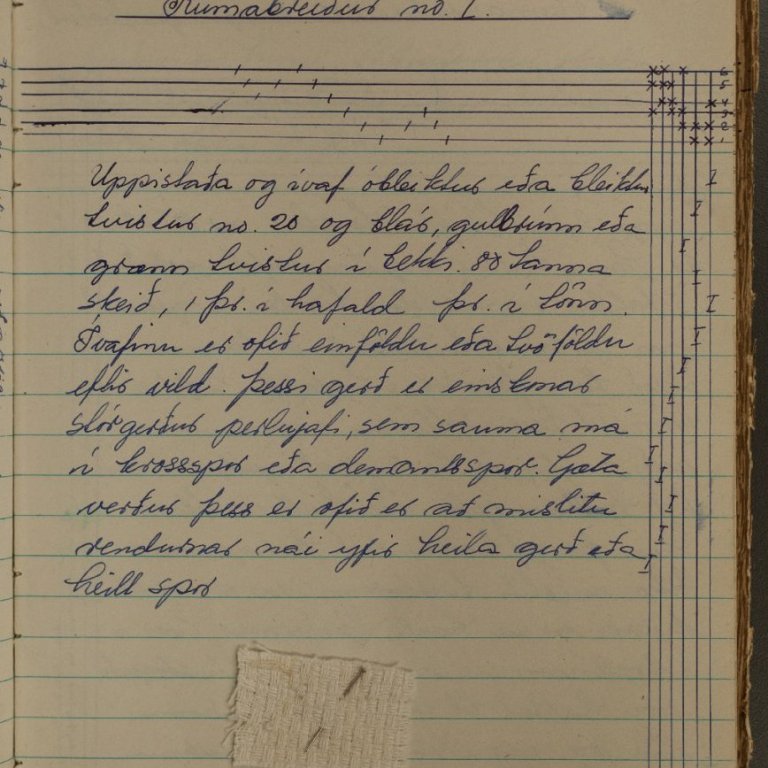 Rúmabreiður no. 1.
6
5
4
3
2
1
Uppistaða og ívaf óbleiktur eða bleiktur
tvistur no. 20 og blár, gulbrúnn eða
grænn tvistur í bekki. 80 tanna
skeið, 1 þr. í hafald þr. í tönn.
Ívafinu er ofið einföldu eða tvöföldu
eftir vild. Þessi gerð er einskonar
stórgerður perlujafi, sem sauma má
í krossspor eða demantsspor. Gæta
verður þess er ofið er að mislitu
rendurnar nái yfir heila gerð eða
heill spor